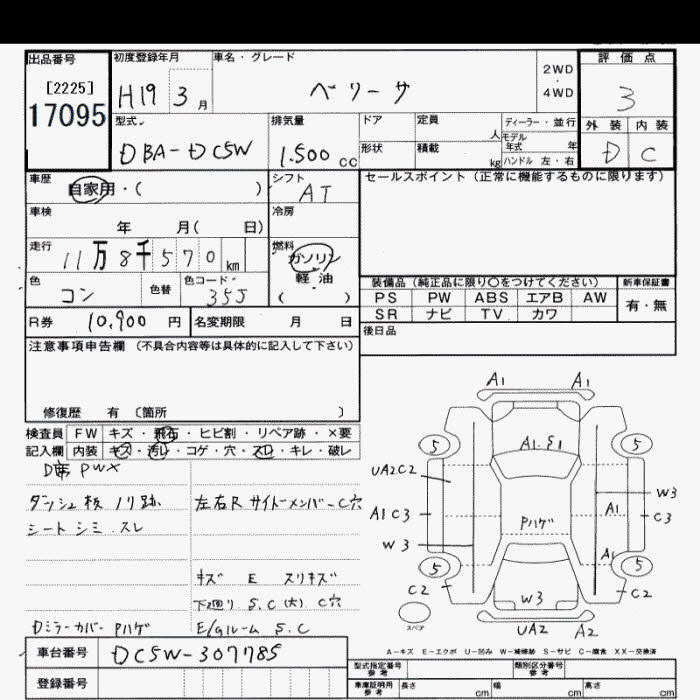 出品番号
[2225]
17095
初度登録年月
H19 3月
車名・グレード
ベリーサ
2WD
・
4WD
評価点
3
外装 内装
D C
型式
DBA-DC5W
排気量
1.500cc
ドア
定員
人
ディーラー・並行
モデル
年式 年
形状
積載
kg
ハンドル 左・右
車歴
自家用・( )
シフト
AT
セールスポイント(正常に機能するものに限ります)
車検
年 月( 日)
冷房
走行
11万8千570km
燃料
ガソリン
軽油
( )
色
コン
色替
色コード
35J
装備品(純正品に限り○をつけてください)
PS PW ABS エアB AW
SR ナビ TV カワ
新車保証書
有・無
R券
10,900円
名変期限 月 日
後日品
注意事項申告欄(不具合内容等は具体的に記入して下さい)
修復歴 有〔箇所 〕
検査員
記入欄
FW キズ・飛石・ヒビ割・リペア跡・×要
内装 キズ・汚レ・コゲ・穴・スレ・キレ・破レ
D席 PWX
ダッシュ板 ノリ跡
シート シミ スレ
左右R サイドメンバーC穴
キズ E スリキズ
下回り S.C(大) C穴
Dミラーカバー Pハゲ
E/gルーム S.C
A1 A1
5 5
A1.E1
UA2C2
W3
A1C3 A1 C3
Pハゲ
W3
A1
5 5
C2 C2
W3
スペア
UA2 A2
A-キズ E-エクボ U-凹み W-補修跡 S-サビ C-腐食 XX-交換済
車台番号
DC5W-307785
登録番号
型式指定番号
参考
類別区分番号
参考
車庫証明用
参考
長さ cm 幅 cm 高さ cm